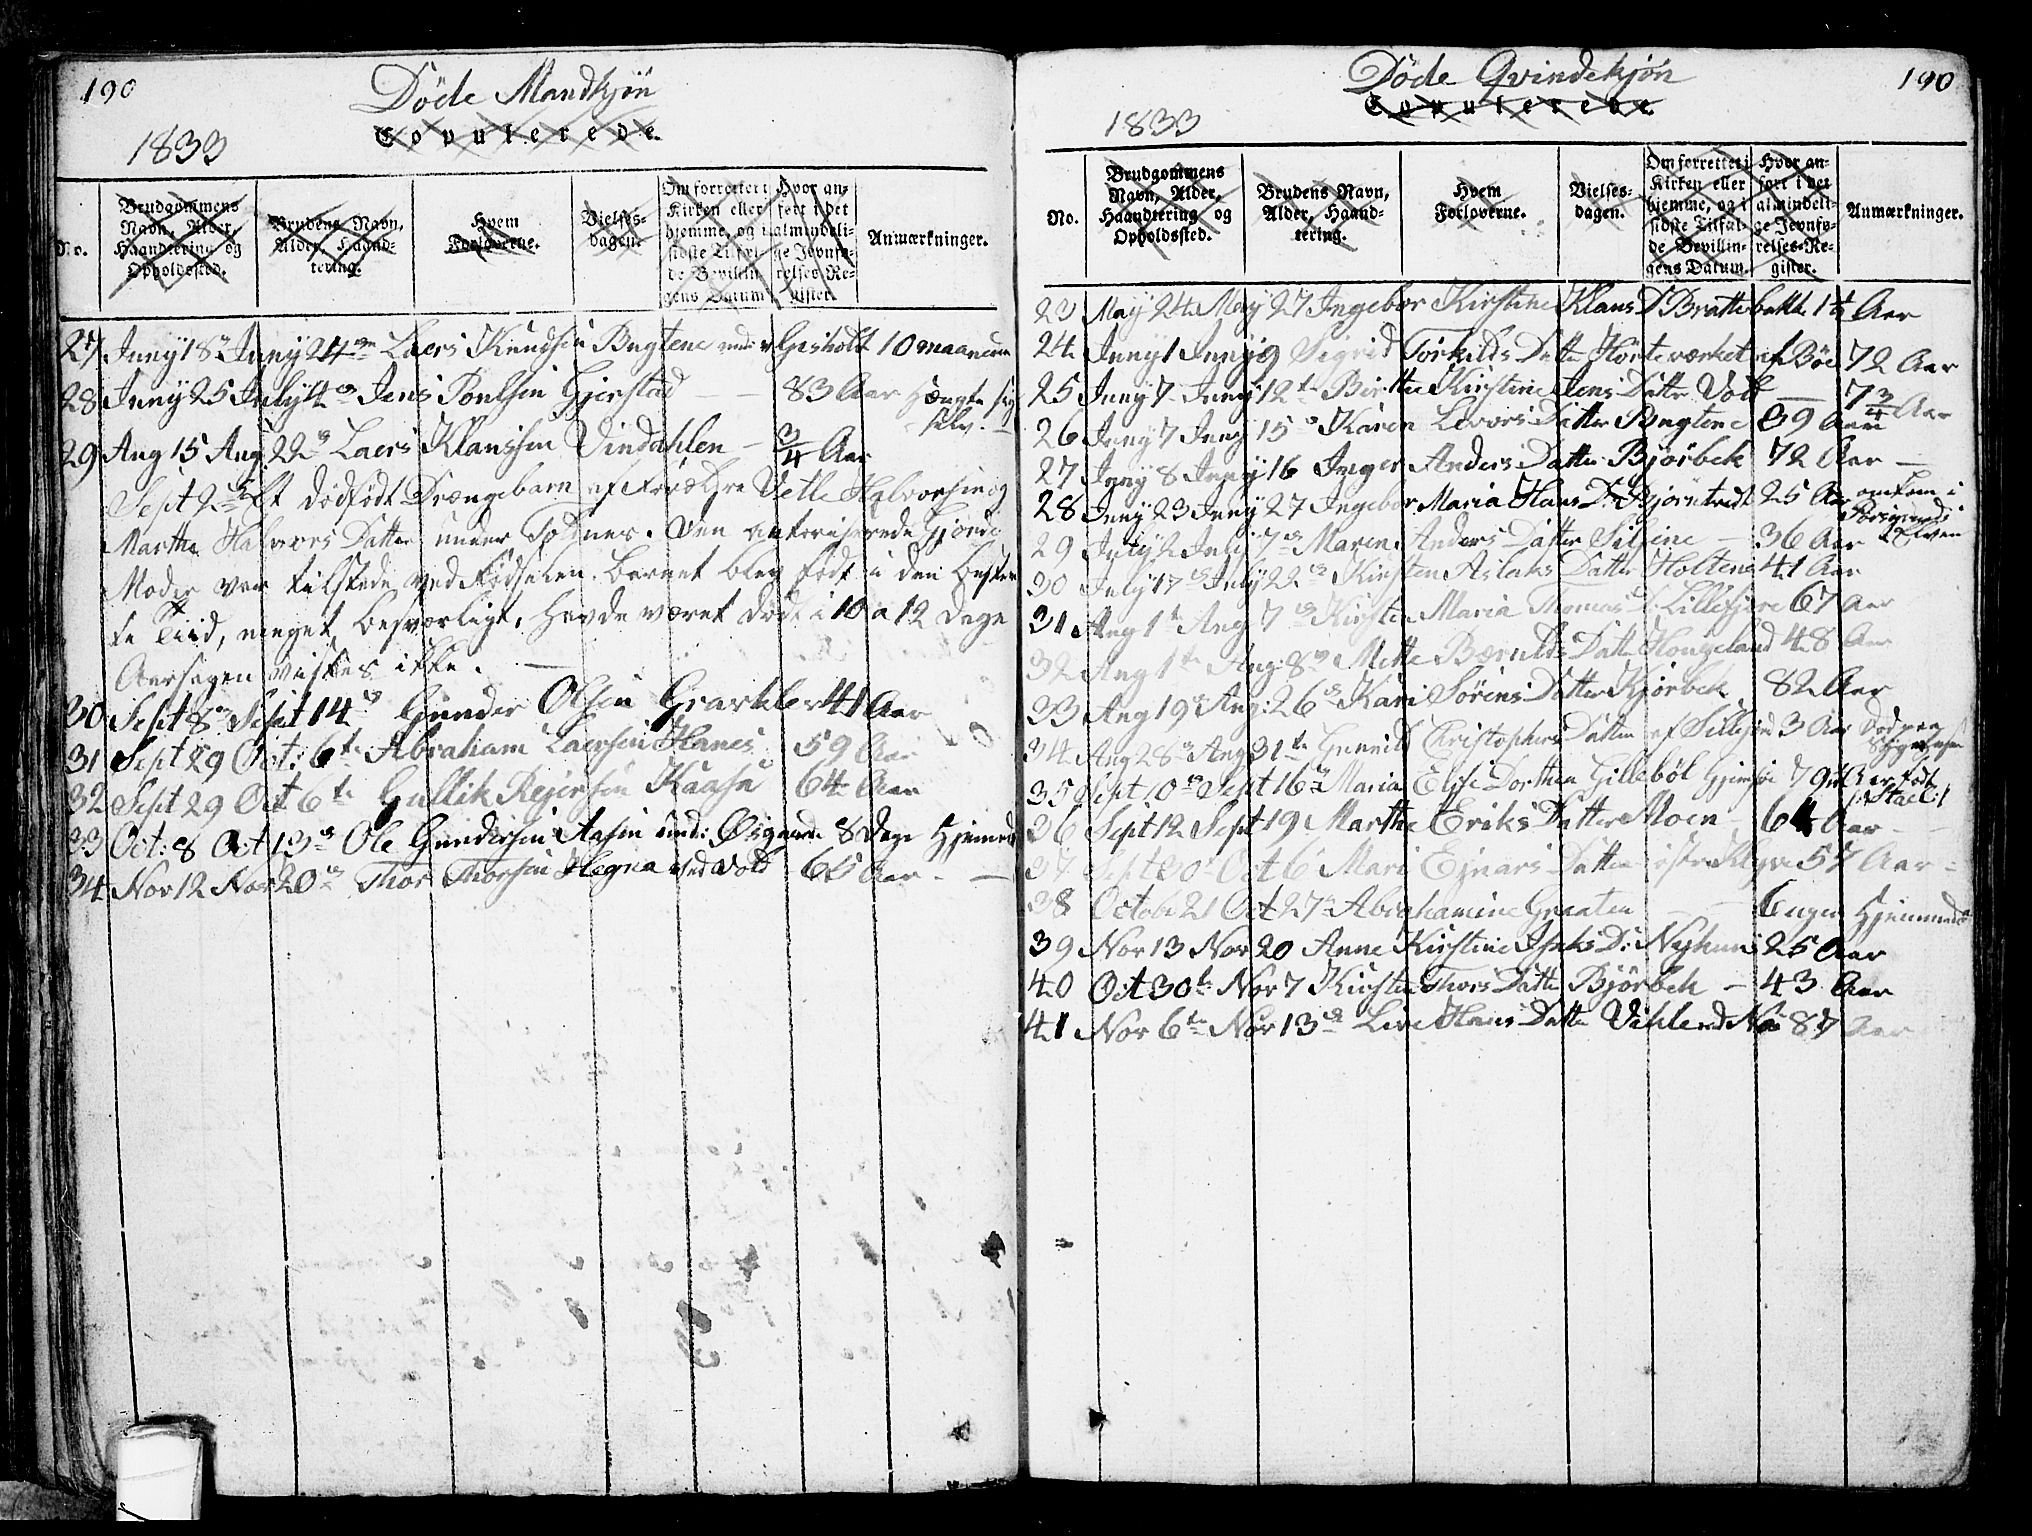 190
Døde Mandkjøn
Copulerede.
1833
No.
Brudgommens Navn, Alder, Haandtering og Opholdssted.
Brudens Navn, Alder, Haandtering.
Hvem Forloverne.
Vielses-dagen.
Om forrettet i Kirken eller hjemme, og i sidste Tilfælde Bevillingens Datum.
Hvor anført i det almindelige Jevnførelses-Register.
Anmærkninger.
27 Juny 18 Juny 24 Laers Knudsen Bugtene under Gisholt 10 maaneder
28 Juny 25 July 4 Jens Poulsen Gjerstad — 83 Aar Hængte sig selv. —
29 Aug 15 Aug: 22 Laers Klaussen Vindahlen — 3/4 Aar
Sept 2 Et dødfødt Drængebarn af Forældre Vetle Halvorsen og
Marthe Halvors Datter under Solnes. Den autoriserede Gjorde
Moder var tilstede ved Fødselen. Barnet blev født i den beste
te Tiid, meget besværligt, Havde været død i 10 a 12 Dage
Aarsagen vistes ikke. —
30 Sept 8 Sept 14 Gunder Olsen Graveklev 41 Aar
31 Sept 29 Oct: 6te Abraham Laersen Hanes 59 Aar
32 Sept 29 Oct 6te Gullik Rejersen Kaasa 64 Aar
33 Oct: 8 Oct 13 Ole Gundersen Aasen und: Øsgaard 8 Dage Hjemmed
34 Nov 12 Nov 20 Thor Thorsen Hegna ved Vold 60 Aar. —
190
Døde Qvindekjøn
Copulerede.
1833
No.
Brudgommens Navn, Alder, Haandtering og Opholdssted.
Brudens Navn, Alder, Haandtering.
Hvem Forloverne.
Vielses-dagen.
Om forrettet i Kirken eller hjemme, og i sidste Tilfælde Bevillingens Datum.
Hvor anført i det almindelige Jevnførelses-Register.
Anmærkninger.
23 May 24 May 27 Ingebor Kirstine Klaus D Brattebakke 1 1/2 Aar
24 Juny 1 Juny 9 Sigrid Torkilds Datter Horteværket af Bøe 72 Aar
25 Juny 7 Juny 12te Birthe Kirstine Jens Datter Vold — 7 3/4 Aar
26 Juny 7 Juny 15 Karen Levors Datter Bugtene 39 Aar
27 Juny 8 Juny 16 Inger Anders Datter Bjørbek 72 Aar —
28 Juny 23 Juny 27 Ingebor Maria Hans D. Bjørntvedt 25 Aar omkom i Porsgrunds Elven
29 July 2 July 7 Maren Anders Datter Siljine — 36 Aar
30 July 17 July 22 Kirsten Aslaks Datter Holtene 41 Aar
31 Aug 1te Aug 7 Kirsten Maria Thomas D. Lillefjere 67 Aar
32 Aug 1te Aug: 8 Mette Bærulds Datter Hougeland 48 Aar
33 Aug 19 Aug: 26 Kari Sørens Datter Kjørbek 82 Aar
34 Aug 28 Aug 31te Gunnild Christophers Datter af Sillejord 3 Aar
35 Sept 10 Sept 16 Maria Elise Dorthea Gillebøl Gjemsøe 79 Aar født
36 Sept 12 Sept 19 Marthe Eriks Datter Moen 64 Aar —
37 Sept 30 Oct 6 Mari Ejnars Datter østre Klyve 57 Aar —
38 October 21 Oct 27 Abrahamine Graaten — 6 uger Hjemmed
39 Nov 13 Nov 20 Anne Kirstine Isaks D: Nyhuus 25 Aar
40 Oct 30te Nov 7 Kirsten Thors Datter Bjørbek — 43 Aar
41 Nov 6te Nov 13 Live Hans Datter 87 Aar